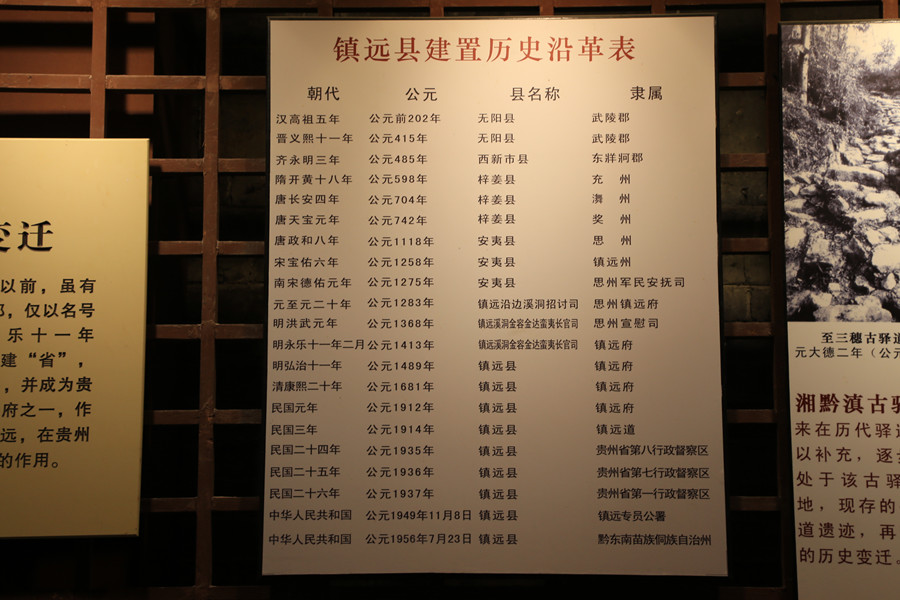 变迁
以前，虽有
仅以名号
乐十一年
建“省”，
，并成为贵
府之一，作
远，在贵州
的作用。
镇远县建置历史沿革表
朝代 公元 县名称 隶属
汉高祖五年 公元前202年 无阳县 武陵郡
晋义熙十一年 公元415年 无阳县 武陵郡
齐永明三年 公元485年 西新市县 东牂牁郡
隋开黄十八年 公元598年 梓姜县 充 州
唐长安四年 公元704年 梓姜县 潕 州
唐天宝元年 公元742年 梓姜县 奖 州
唐政和八年 公元1118年 安夷县 思 州
宋宝佑六年 公元1258年 安夷县 镇远州
南宋德佑元年 公元1275年 安夷县 思州军民安抚司
元至元二十年 公元1283年 镇远沿边溪洞招讨司 思州镇远府
明洪武元年 公元1368年 镇远溪洞金容金达蛮夷长官司 思州宣慰司
明永乐十一年二月 公元1413年 镇远溪洞金容金达蛮夷长官司 镇远府
明弘治十一年 公元1489年 镇远县 镇远府
清康熙二十年 公元1681年 镇远县 镇远府
民国元年 公元1912年 镇远县 镇远府
民国三年 公元1914年 镇远县 镇远道
民国二十四年 公元1935年 镇远县 贵州省第八行政督察区
民国二十五年 公元1936年 镇远县 贵州省第七行政督察区
民国二十六年 公元1937年 镇远县 贵州省第一行政督察区
中华人民共和国 公元1949年11月8日 镇远县 镇远专员公署
中华人民共和国 公元1956年7月23日 镇远县 黔东南苗族侗族自治州
至三穗古驿道
元大德二年（公元
湘黔滇古驿
来在历代驿道
以补充，逐步
处于该古驿
地，现存的
道遗迹，再
的历史变迁。